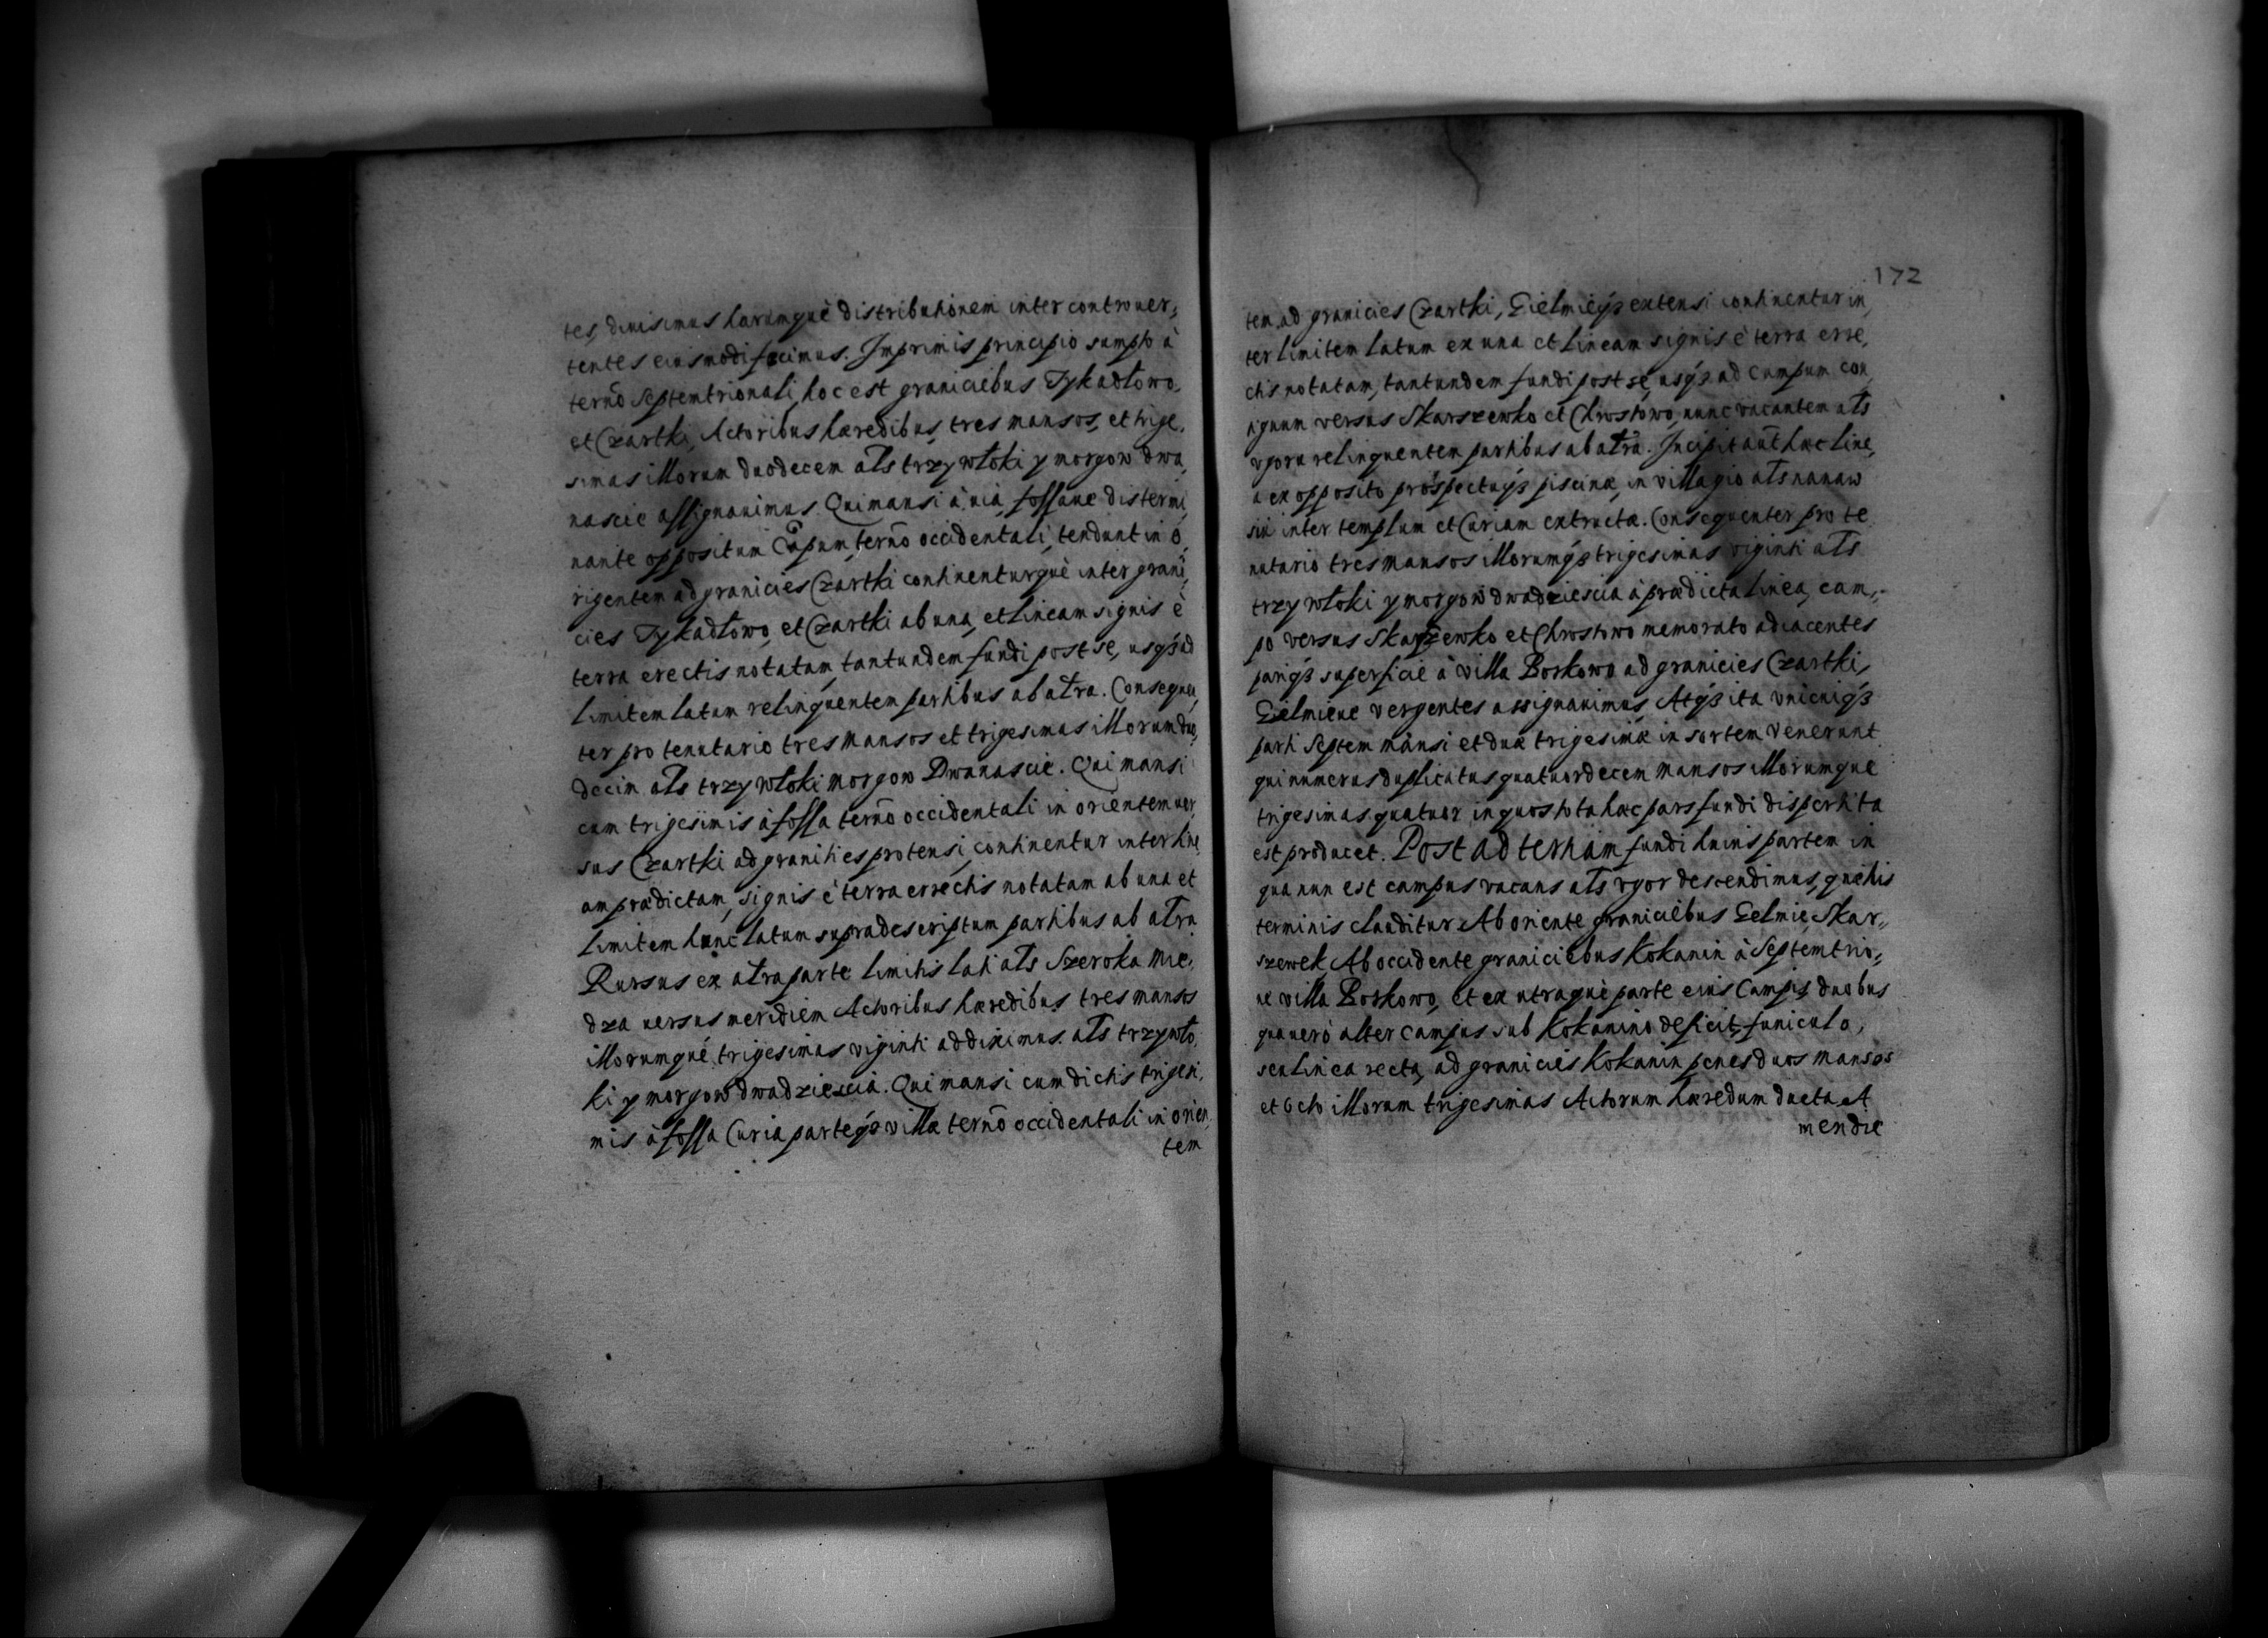 tes, diuisimus harumquè distributionem inter controuer,
tentes eiusmodi fecimus. Imprimis principio sumpto à
terno septemtrionali, hoc est graniciebus Tykadłowo,
et Czartki, Actoribus hæredibus, tres mansos, et trige,
simas illorum duodecem als trzy włoki y morgow dwa,
nascie assignauimus. Qui mansi à uia, fossaue distermi,
nante oppositum Capum, terno occidentali, tendunt in o,
rigentem ad granicies Czartki continenturquè inter grani,
cies Tykadłowo, et Czartki ab una, et lineam signis è
terra erectis notatam, tantundem fundi post se, usq3 ad
limitem latum relinquentem partibus ab altra. Consequen,
ter pro tenutario tres mansos et trigesimas illorum duo,
decim als trzy włoki morgow Dwanascie. Qui mansi
cum trigesimis à fossa terno occidentali in orientem uer,
sus Czartki ad granities protensi, continentur inter line,
am prædictam, signis è terra errectis notatam ab una et
limitem hunc latum supradescriptum partibus ab altra
Rursus ex altra parte limitis lati als Szeroka mie,
dza uersus meridiem Actoribus hæredibus tres mansos
illorumquè trigesimas viginti addiximus. als trzy wło,
ki y morgow dwadziescia. Qui mansi cum dictis trigesi,
mis à fossa Curia parteq3 villæ terno occidentali in orien,
tem
172
tem ad granicies Czartki, Gielmieq3 extensi continentur in,
ter limitem latum ex una et lineam signis è terra erre,
ctis notatam, tantundem fundi post se, usq3 ad Campum con
iguum versus Skarszewko et Chrostowo, nunc vacantem als
vgora relinquentem partibus ab altra. Incipit aut hæc line,
a ex opposito prospectuq3 piscinæ, in villagio als nanaw
siu inter templum et Curiam extructæ. Consequenter pro te
nutario tres mansos illorumq3 trigesimas viginti als
trzy włoki y morgow dwadziescia à prædicta linea, cam,
po versus Skarszewko et Chrostowo memorato adiacentes
pariq3 superficie à villa Borkowo ad granicies Czartki,
Gielmieue vergentes assignauimus, Atq3 ita vnicuiq3
parti septem mansi et duæ trigesimæ in sortem venerunt
qui numerus duplicatus quatuordecem mansos illorumque
trigesimas quatuor in quos tota hæc pars fundi dispertita
est producet. Post ad tertiam fundi huius partem in
qua nun est campus vacans als vgor descendimus, què his
terminis clauditur Ab oriente graniciebus Gelmie, Skar,,
szewek, Ab occidente graniciebus Kokanin à Septemtrio,
ne villa Borkowo, et ex utraquè parte eius Campis duobus
qua uerò alter campus sub Kokanino deficit, funiculo,
seu linea recta, ad granicies Kokanin penes duos mansos
et octo illorum trigesimas Actorum hæredum ducta. A
meridie